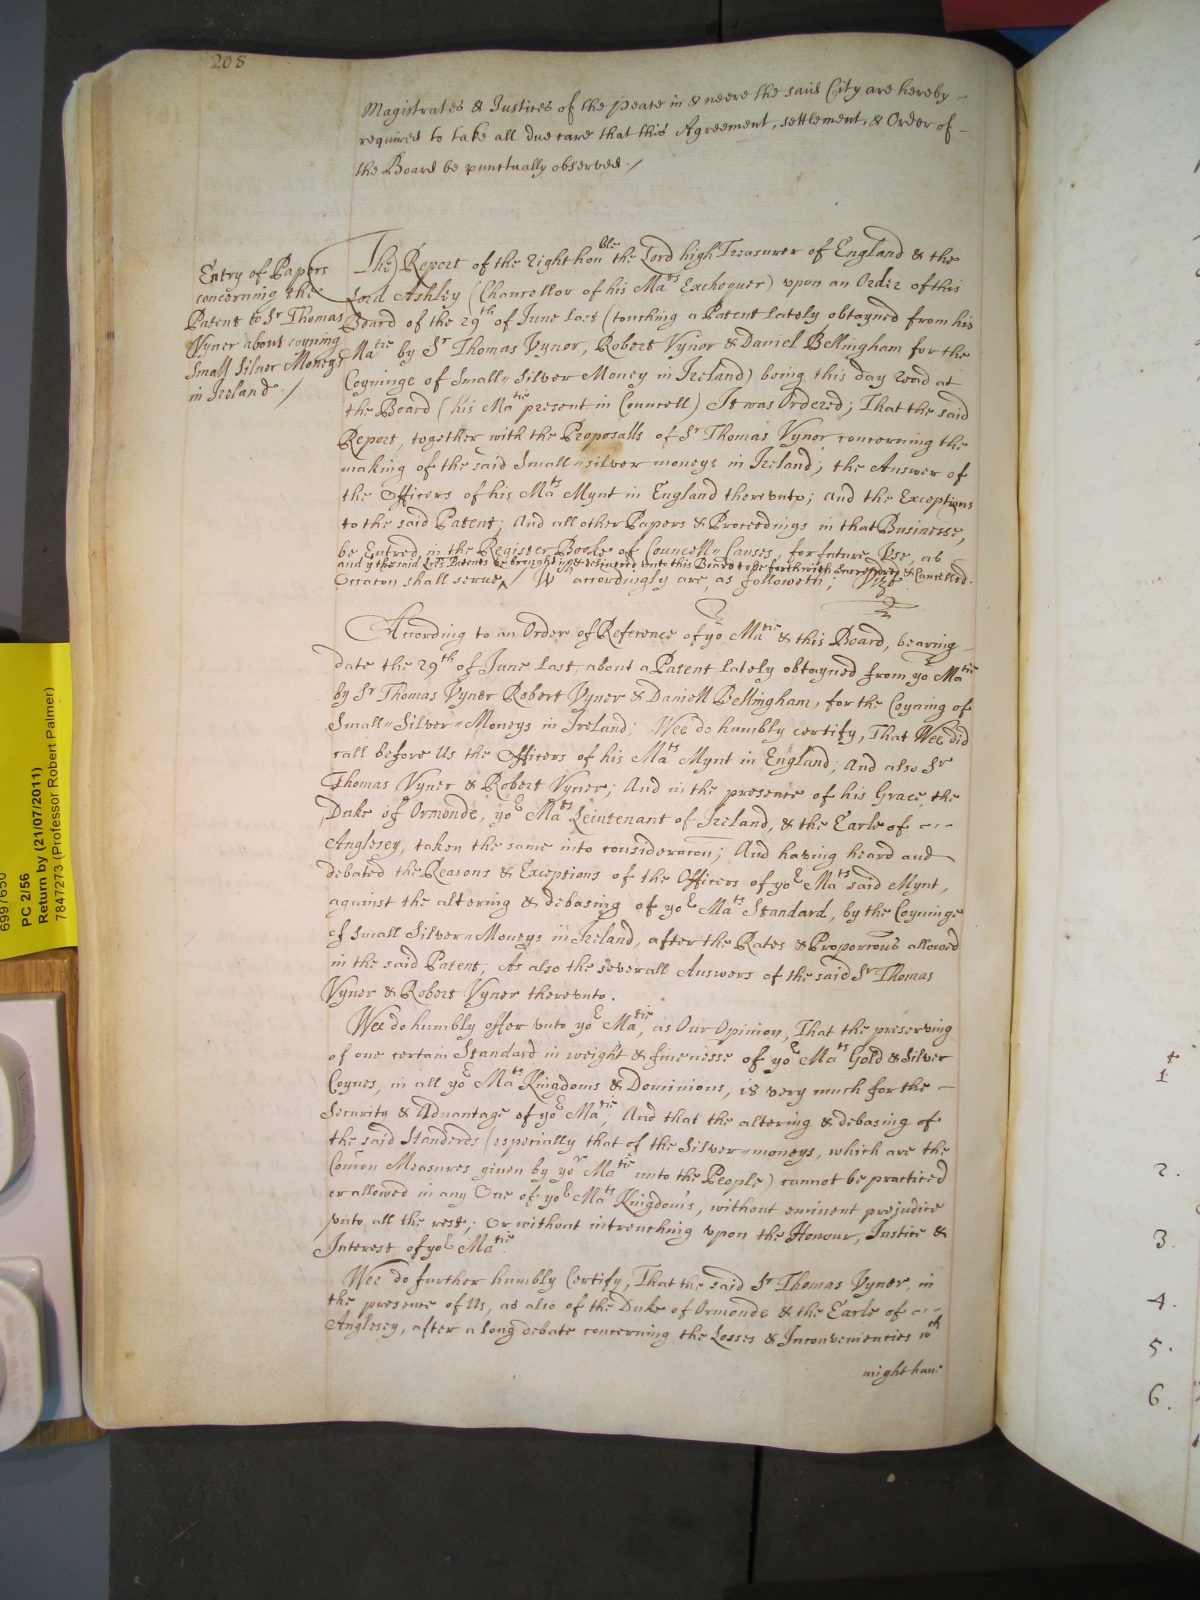 208
Magistrates & Justices of the peace in & neere the said City are hereby
required to take all due care that this Agreement, settlement, & Order of
the Board be punctually observed./
Entry of Papers
concerning the
Patent to Sr Thomas
Vyner about coyning
Small Silver Moneys
in Ireland./
The Report of the right honble the Lord high Treasurer of England & the
Lord Ashley (Chancellor of his Mats Exchequer) upon an Order of this
Board of the 29th of June last (touching a Patent lately obtayned from his
Matie by Sr Thomas Vynor, Robert Vynor & Daniel Bellingham for the
Coyninge of Small-Silver Money in Ireland) being this day read at
the Board (his Matie present in Councell) It was Ordered; That the said
Report, together with the Proposalls of Sr Thomas Vynor concerning the
making of the said Small-silver moneys in Ireland; the Answer of
the Officers of his Mats Mynt in England therevnto; and the Exceptions
to the said Patent; And all other Papers & Proceedings in that Businesse,
be Entred in the Register Booke of Councell-Causes, for future Vse, as
and yt the said Lres Patents be brought in & delivered vnto this Board to be forthwith Surrendred & Cancelled.
Occacon shall serve / Wch accordingly are, as followeth; Vizt
According to an Order of Reference of yor Matie & this Board, bearing
date the 29th of June last, about a Patent lately obtayned from yor Matie
by Sr Thomas Vyner Robert Vyner & Daniell Bellingham, for the Coyning of
Small-Silver-Moneys in Ireland; Wee do humbly certify, That Wee did
call before Us the Officers of his Mats Mynt in England; And also Sr
Thomas Vyner & Robert Vyner; And in the presence of his Grace, the
Duke of Ormonde, yor Mats Leiutenant of Ireland, & the Earle of
Anglesey, taken the same into consideracon; And having heard and
debated the Reasons & Exceptions of the Officers of yor Mats said Mynt,
against the altering & debasing of yor Mats Standard, by the Coyninge
of Small Silver-Moneys in Ireland, after the Rates & Proporcons allowed
in the said Patent; As also the severall Answers of the said Sr Thomas
Vyner & Robert Vyner therevnto.
Wee do humbly offer vnto yor Matie, as Our Opinion, That the preserving
of one certain Standard in weight & finenesse of yor Mats Gold & Silver
Coynes, in all yor Mats Kingdoms & Dominions, is very much for the
Security & Advantage of yor Matie; And that the altering & debasing of
the said Standerds (especially that of the Silver-moneys, which are the
Comon Measures given by yor Matie unto the People) cannot be practiced
or allowed in any One of yor Mats Kingdom's, without eminent prejudice
vnto all the rest; or without intrenching vpon the Honour, Justice &
Interest of yor Matie.
Wee do further humbly Certify, That the said Sr Thomas Vyner, in
the presence of Us, as also of the Duke of Ormonde & the Earle of
Anglesey, after a long debate concerning the Losses & Inconveniencies wch
might have
PC 2/56
Return by (21/07/2011)
7847273 (Professor Robert Palmer)
1
2.
3.
4.
5.
6.